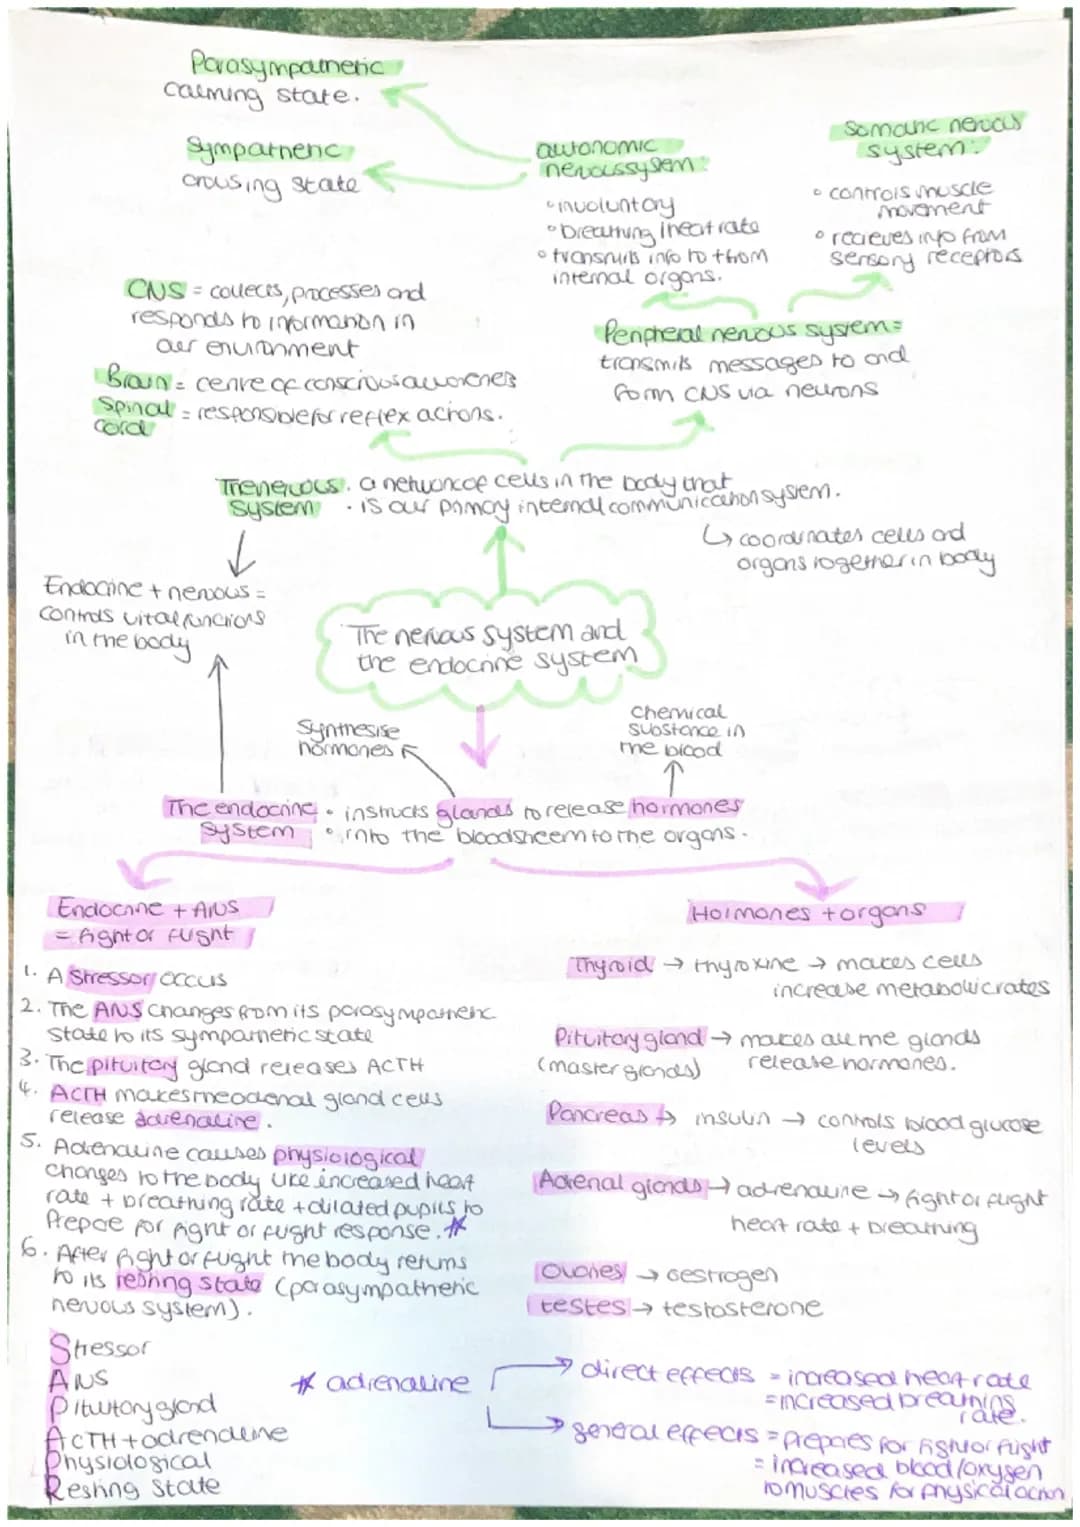 Parasympathetic
calming state.
Sympathetic
arousing state
autonomic
nervous system:
• involuntary
• breathing / heart rate
• transmits info to + from
internal organs.
Somatic nervous
system:
• controls muscle
movement
• recieves info from
sensory receptors
CNS = collects, processes and
responds to information in
our environment
Brain = centre of conscious awareness
Spinal = responsible for reflex actions.
cord
Peripheral nervous system =
transmits messages to and
form CNS via neurons
The nervous . a network of cells in the body that
system . is our primary internal communication system.
↳ coordinates cells and
organs together in body
Endocrine + nervous =
controls vital functions
in the body
The nervous system and
the endocrine system
Synthesise
hormones
chemical
substance in
the blood
The endocrine • instructs glands to release hormones
system • into the bloodstream to the organs.
Endocrine + ANS
= fight or flight
1. A Stressor occurs
2. The ANS changes from its parasympathetic
state to its sympathetic state
3. The pituitary gland releases ACTH
4. ACTH makes the adrenal gland cells
release adrenaline.
5. Adrenaline causes physiological
changes to the body like increased heart
rate + breathing rate + dilated pupils to
Prepare for fight or flight response. *
6. After fight or flight the body returns
to its resting state (parasympathetic
nervous system).
Stressor
ANS
Pituitary gland
ACTH + adrenaline
Physiological
Resting State
Hormones + organs
Thyroid → thyroxine → makes cells
increase metabolic rates
Pituitary gland → makes all the glands
(master glands) release hormones.
Pancreas → insulin → controls blood glucose
levels
Adrenal glands → adrenaline → fight or flight
heart rate + breathing
Ovaries → oestrogen
testes → testosterone
* adrenaline
direct effects = increased heart rate
= increased breathing
rate.
general effects = Prepares for fight or flight
= increased blood/oxygen
to muscles for physical action